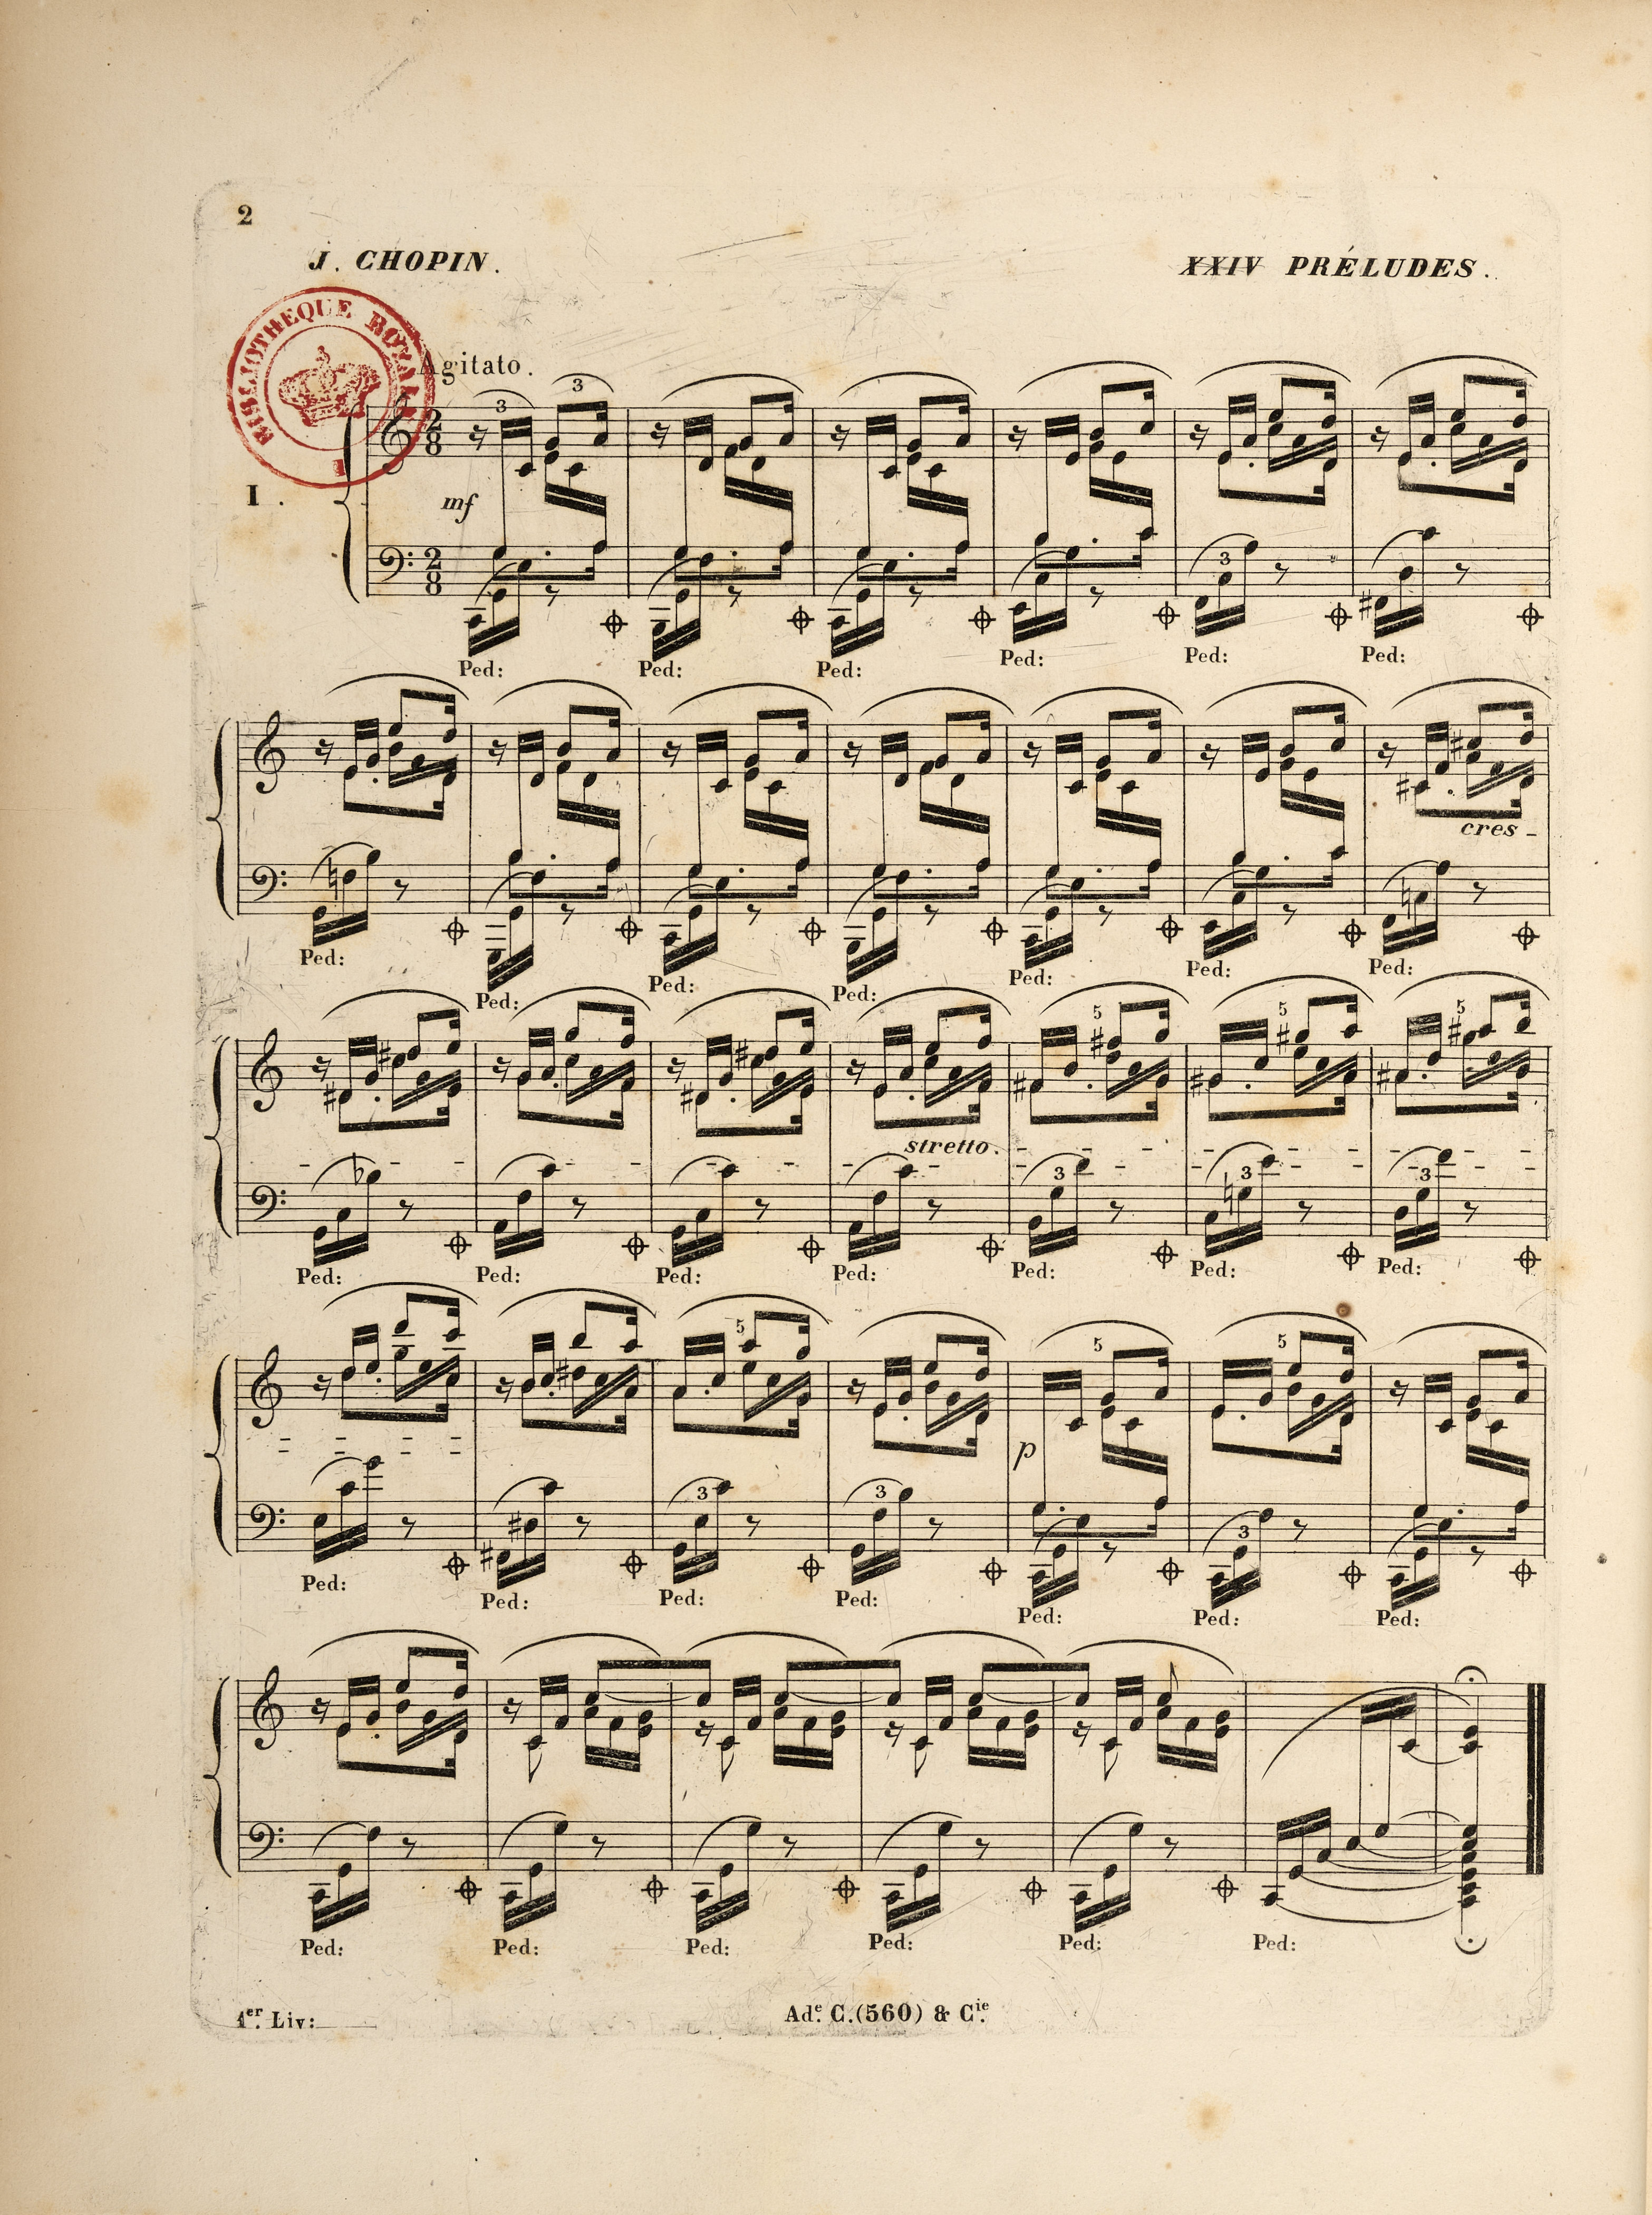 2
J. CHOPIN.
XXIV PRÉLUDES.
BIBLIOTHEQUE ROYALE
Agitato.
3 3
I.
2 8
mf
2 8
3
Ped: Ped: Ped: Ped: Ped: Ped:
cres -
Ped: Ped: Ped: Ped: Ped: Ped: Ped:
5 5 5
stretto.
3 3 3
Ped: Ped: Ped: Ped: Ped: Ped: Ped:
5 5 5
p
3 3 3
Ped: Ped: Ped: Ped: Ped: Ped: Ped:
Ped: Ped: Ped: Ped: Ped: Ped:
1er. Liv:
Ade. C.(560) & Cie.